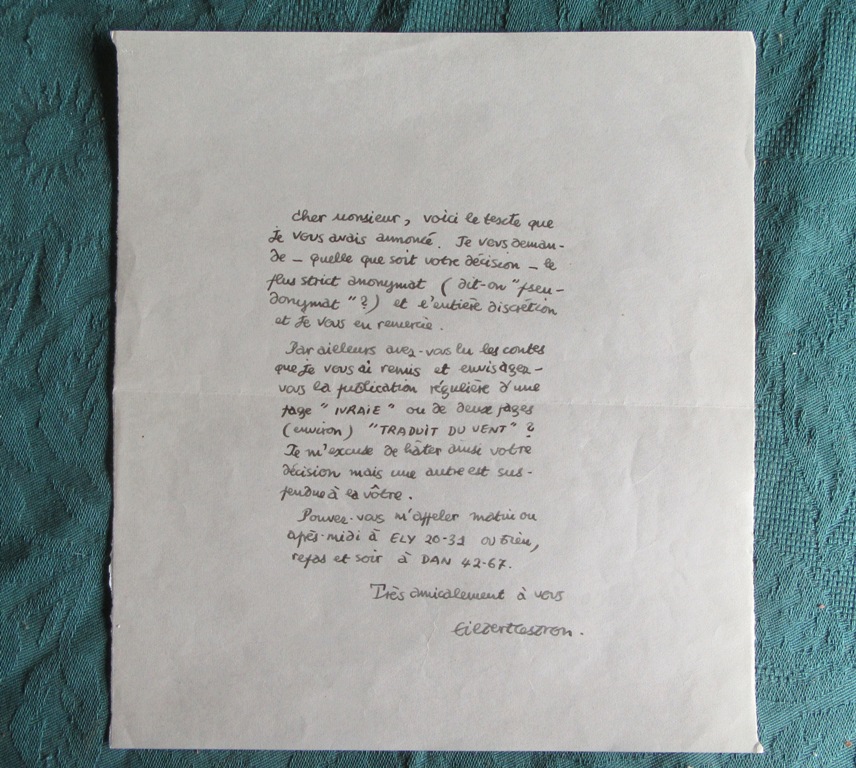 Cher Monsieur, voici le texte que
je vous avais annoncé. Je vous deman-
de – quelle que soit votre décision – le
plus strict anonymat (dit-on "pseu-
donymat"?) et l'entière discrétion
et je vous en remercie.
Par ailleurs avez-vous lu les contes
que je vous ai remis et envisagez-
vous la publication régulière d'une
page "IVRAIE" ou de deux pages
(environ) "TRADUIT DU VENT"?
Je m'excuse de hâter ainsi votre
décision mais une autre est sus-
pendue à la vôtre.
Pouvez-vous m'appeler matin ou
après-midi à ELY 20-31 ou bien,
repas et soir à DAN 42-67.
Très amicalement à vous